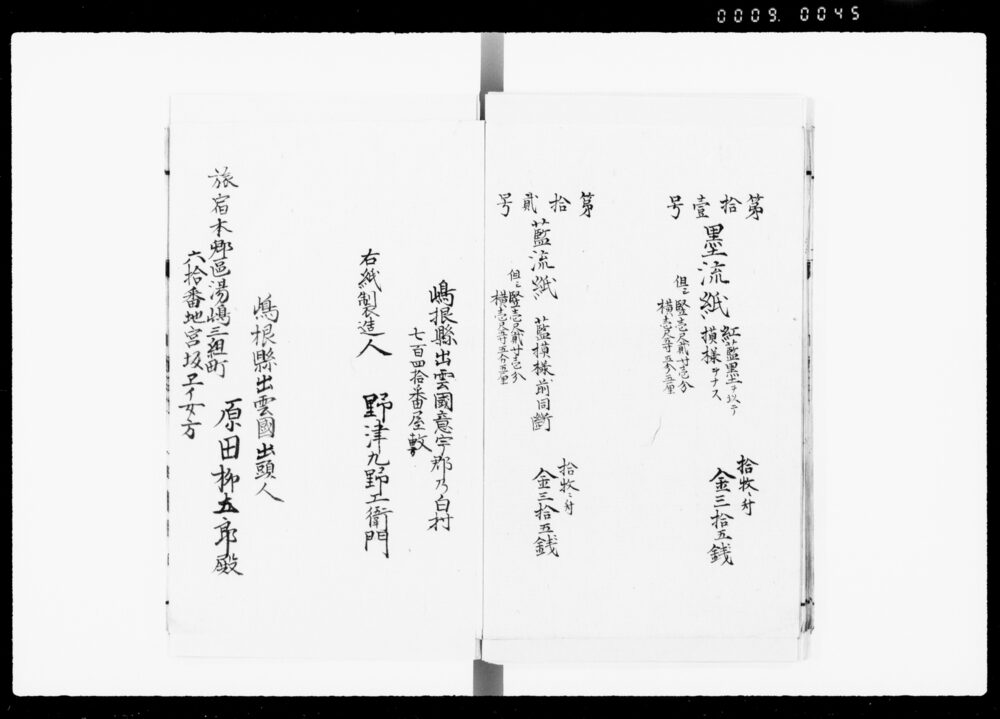 0009.0045
第拾壹号
墨流紙
紅藍黒土ヲ以テ
模様ヲナス
但シ竪壱尺貳寸壱分
横壱尺壱寸五分五厘
拾枚ニ付
金三拾五銭
第拾貳号
藍流紙
藍模様前同断
但シ竪壱尺貳寸壱分
横壱尺壱寸五分五厘
拾枚ニ付
金三拾五銭
嶋根縣出雲國意宇郡乃白村
七百四拾番屋敷
右紙製造人
野津九野エ衛門
嶋根縣出雲國出頭人
原田柳五郎殿
旅宿本郷區湯嶋三組町
六拾番地宮坂ヱイ女方